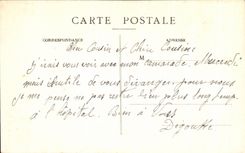 CARTE POSTALE
CORRESPONDANCE ADRESSE
Cousin et Chère Cousine
J'irais vous voir avec mon camarade Mercredi
mais inutile de vous déranger pour nous
je me pense ne pas rester bien plus longtemps
à l'hôpital. Bons à Vous
Degouffe